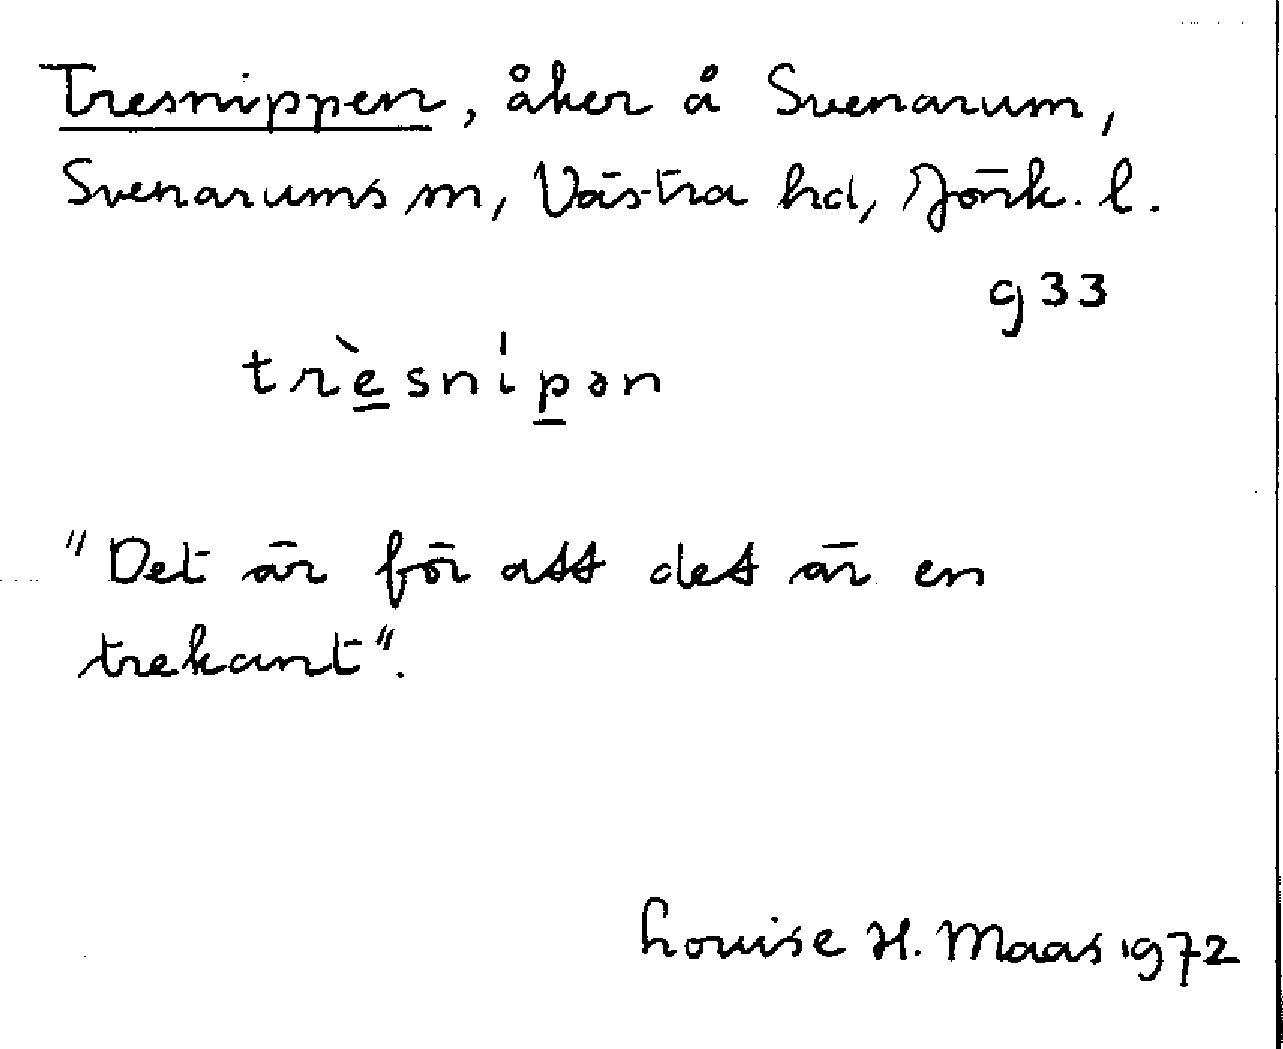 Tresnippen, åker å Svenarum,
Svenarums sn, Västra hd, Jönk. l.
g33
trèsnípən
"Det är för att det är en
trekant".
Louise H. Maas 1972